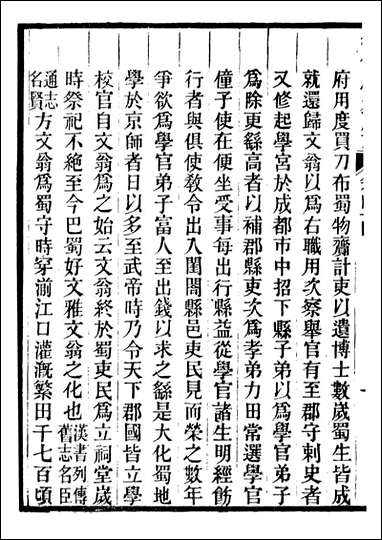 府用度買刀布蜀物齎計吏以遺博士數歲蜀生皆成
就還歸文翁以爲右職用次察舉官有至郡守刺史者
又修起學宮於成都市中招下縣子弟以爲學官弟子
爲除更繇高者以補郡縣吏次爲孝弟力田常選學官
僮子使在便坐受事每出行縣益從學官諸生明經飭
行者與俱使敎令出入閨閤縣邑吏民見而榮之數年
爭欲爲學官弟子富人至出錢以求之繇是大化蜀地
學於京師者日以多至武帝時乃令天下郡國皆立學
校官自文翁爲之始云文翁終於蜀吏民爲立祠堂歲
時祭祀不絶至今巴蜀好文雅文翁之化也漢書列傳舊志名臣
通志名賢方文翁爲蜀守時穿湔江口灌漑繁田千七百頃